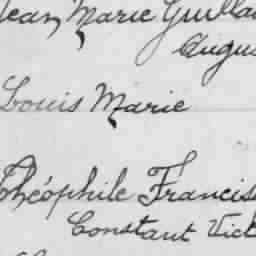 Jean Marie Guilla
Augu
Louis Marie
Théophile Francis
Constant Vict